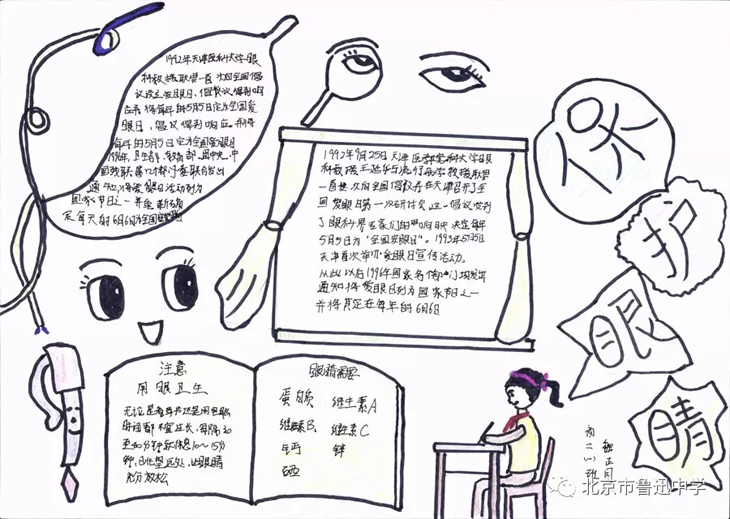 1992年天津医科大学眼
科教授
议设立爱眼日,倡议得到响
应并将每年的5月5日定为全国爱
眼日,倡议得到响应,并将
每年的5月5日定为全国爱眼日
1996年,卫生部、教育部、团中央、中
国残联等12个部门
通知,将爱眼日活动列为
国家节日之一并重新确
定每年的6月6日为全国爱眼日
1992年9月25日天津医科大学眼
科教授王延华与流行病学教授耿贯
一首次向全国倡议在天津召开了全
国爱眼日第一次研讨会这一倡议受到
了眼科界专家们的响应决定每年
5月5日为“全国爱眼日”。1993年5月5日
天津首次举办爱眼日宣传活动。
从此以后1996年国家
通知将爱眼日列为国家节日之一
并将其定在每年的6月6日
保
护
眼
睛
注意
用眼卫生
无论是看书还是用电脑
时间都不宜过长,每隔30
至40分钟就休息10~15分
钟,
充分放松
眼睛需要
蛋白质 维生素A
维生素B 维生素C
钙 锌
硒
初二(1)班
北京市鲁迅中学